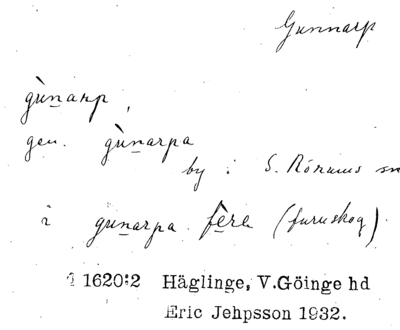 Gunnarp
gùnarp,
gen. gùnarpa
by i S. Rörums sn
i gunarpa fére (furuskog)
1620:2 Häglinge, V.Göinge hd
Eric Jehpsson 1932.